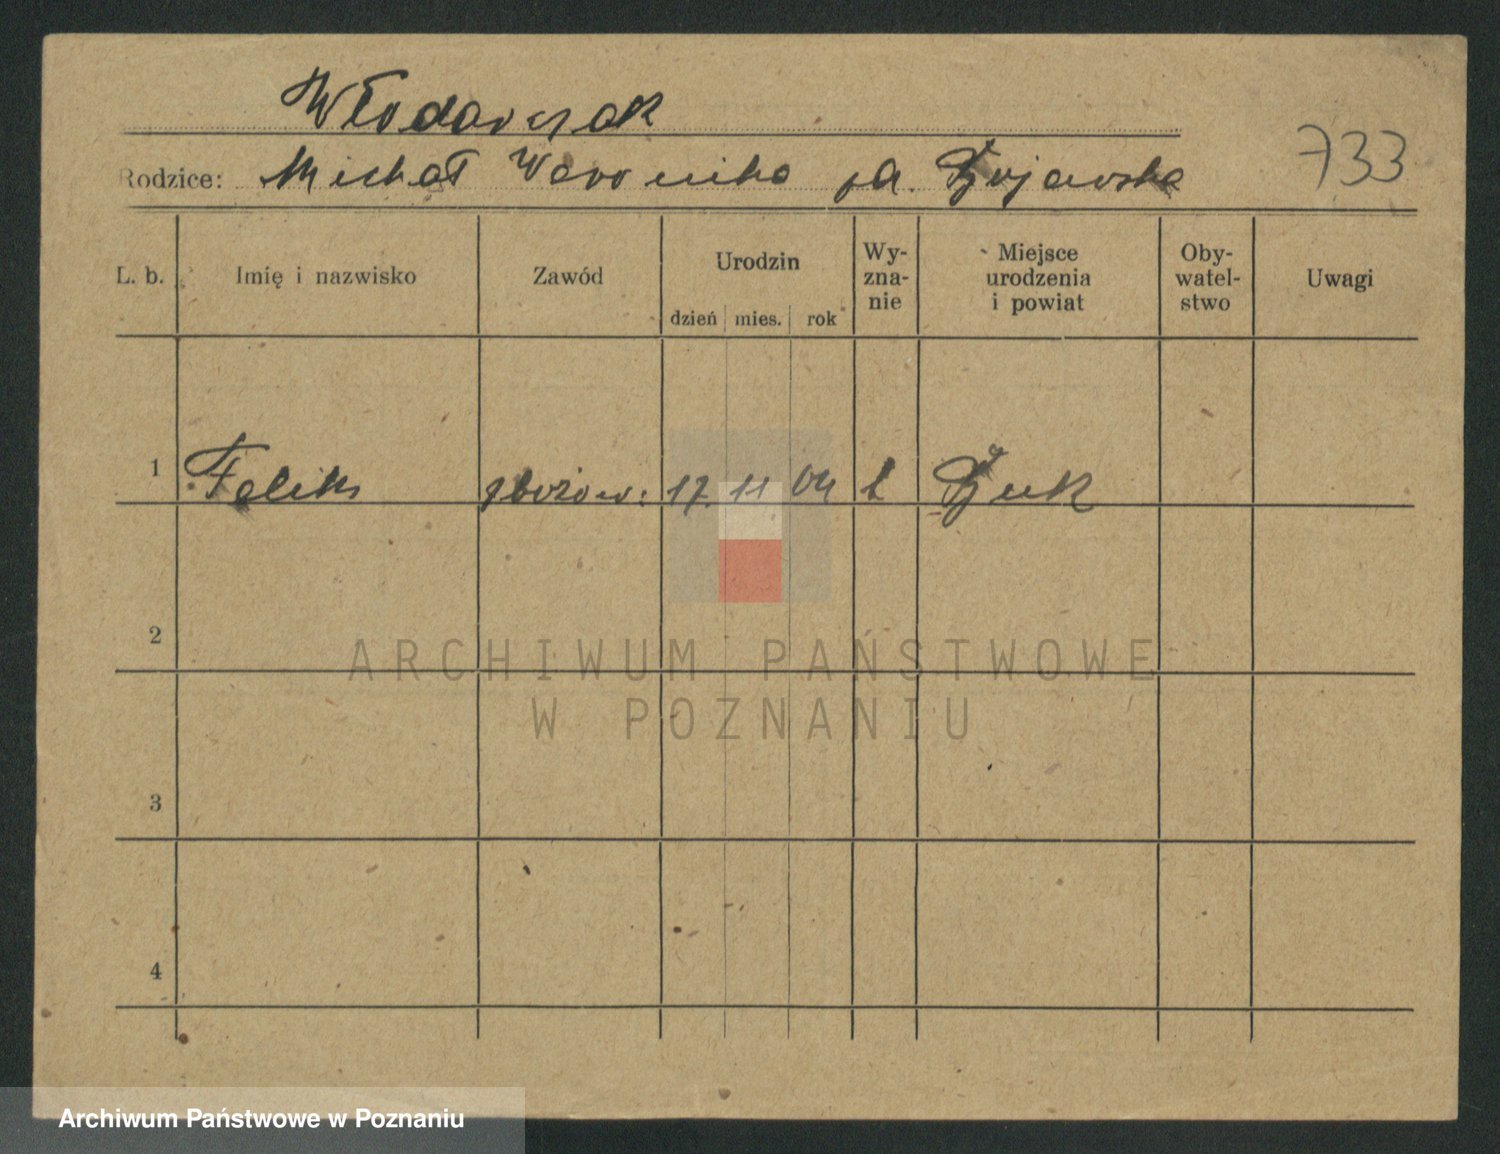 Włodarczak
Rodzice: Michał Weronika pd.
733
L. b. Imię i nazwisko Zawód Urodzin dzień mies. rok Wy-zna-nie Miejsce urodzenia i powiat Oby-watel-stwo Uwagi
1 Feliks 17. 11 04
2
ARCHIWUM PAŃSTWOWE
W POZNANIU
3
4
Archiwum Państwowe w Poznaniu